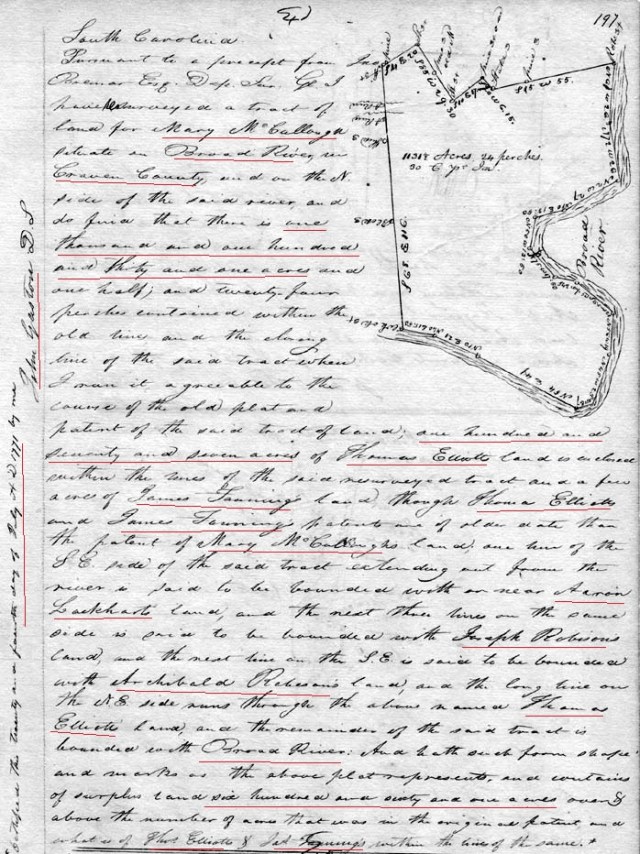 197
South Carolina
Pursuant to a precept from
Bremar Esq. Dep. Sur. Gl. I
have resurveyed a tract of
land for Mary McCullough
situate on Broad River, in
Craven County, and on the N.
side of the said river, and
do find that there is one
thousand and one hundred
and thirty and one acres and
one half; and twenty four
perches contained within the
old line and the closing
line of the said tract when
I run it agreeable to the
course of the old plat and
patent of the said tract of land; one hundred and
seventy and seven acres of Thomas Elliotts land is inclosed
within the lines of the said resurveyed tract and a few
acres of James Fannings land, though Thomas Elliotts
and James Fannings patents are of older date than
the patent of Mary McCulloughs land: one line of the
S.E. side of the said tract extending out from the
river is said to be bounded with or near Aaron
Lockharts land, and the next three lines on the same
side is said to be bounded with Joseph Robisons
land, and the next line on the S.E. is said to be bounded
with Archibald Robesons land, and the long line on
the N.E. side runs through the above named Thomas
Elliotts land, and the remainder of the said tract is
bounded with Broad River: And hath such form shape
and marks as the above plat represents, and contains
of surplus land six hundred and sixty and one acres over &
above the number of acres that was in the original patent, and
what is of Thos Elliotts & Jas Fannings within the line of the same.
Certifyed this twenty and fourth day of July A.D. 1771 by me
John Gaston D.S.
24 perches.
S 65 E 116
Broad
River